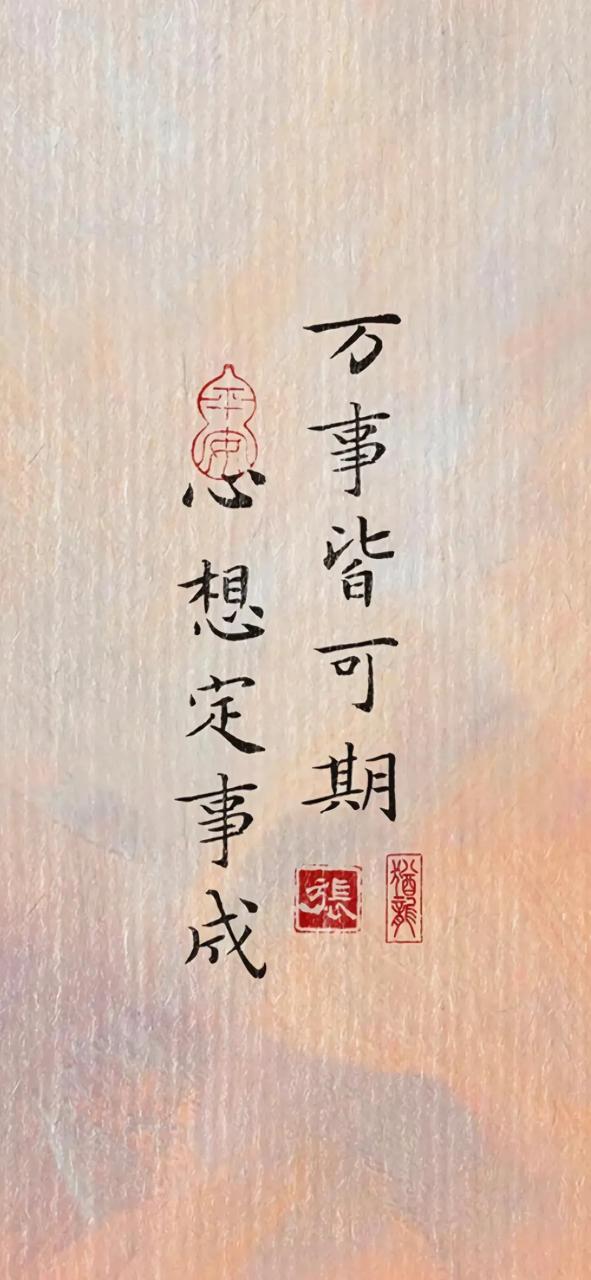 万事皆可期
心想定事成
平安
張
猶龍